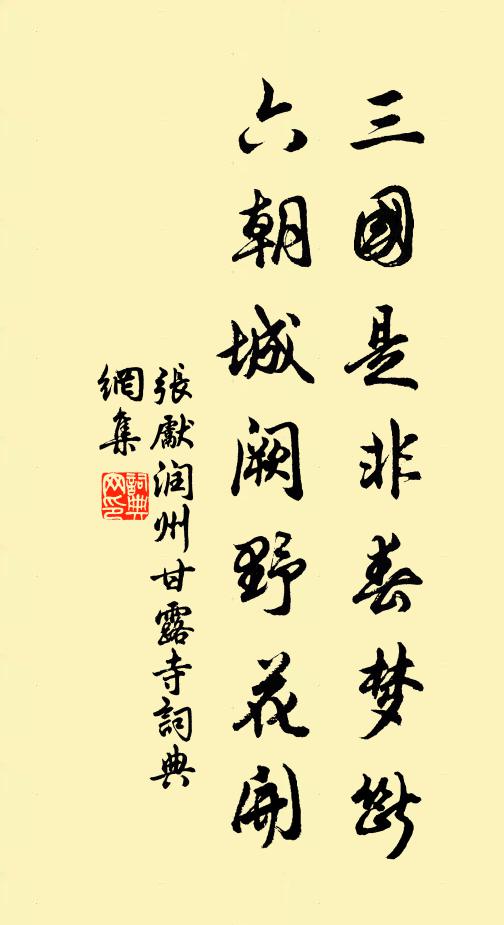 三國是非春梦斷
六朝城阙野花開
張獻润州甘露寺詞典
網集
詞典網印